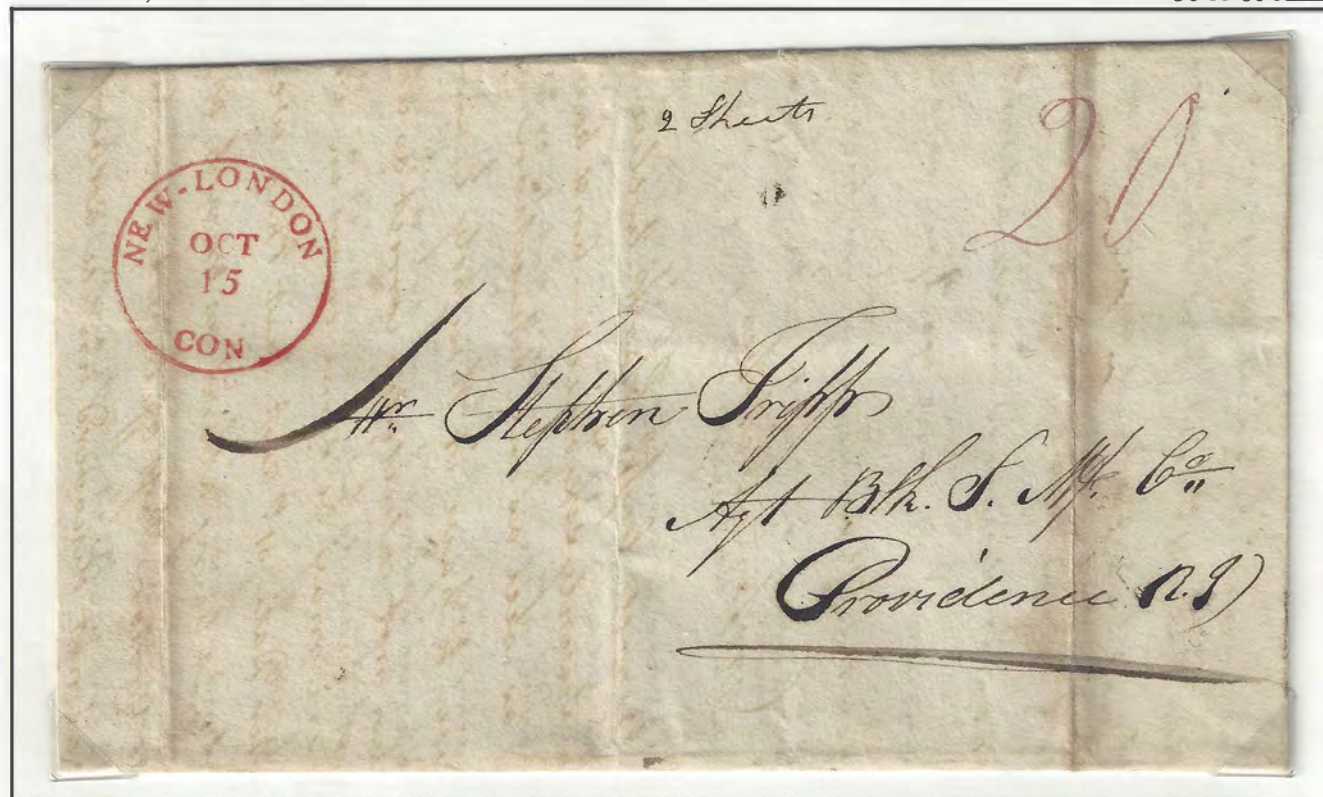 2 Sheets
20
NEW-LONDON
OCT
15
CON
Mr. Stephen Tripp
Agt Blk. S. Mfg. Co.
Providence R.I)